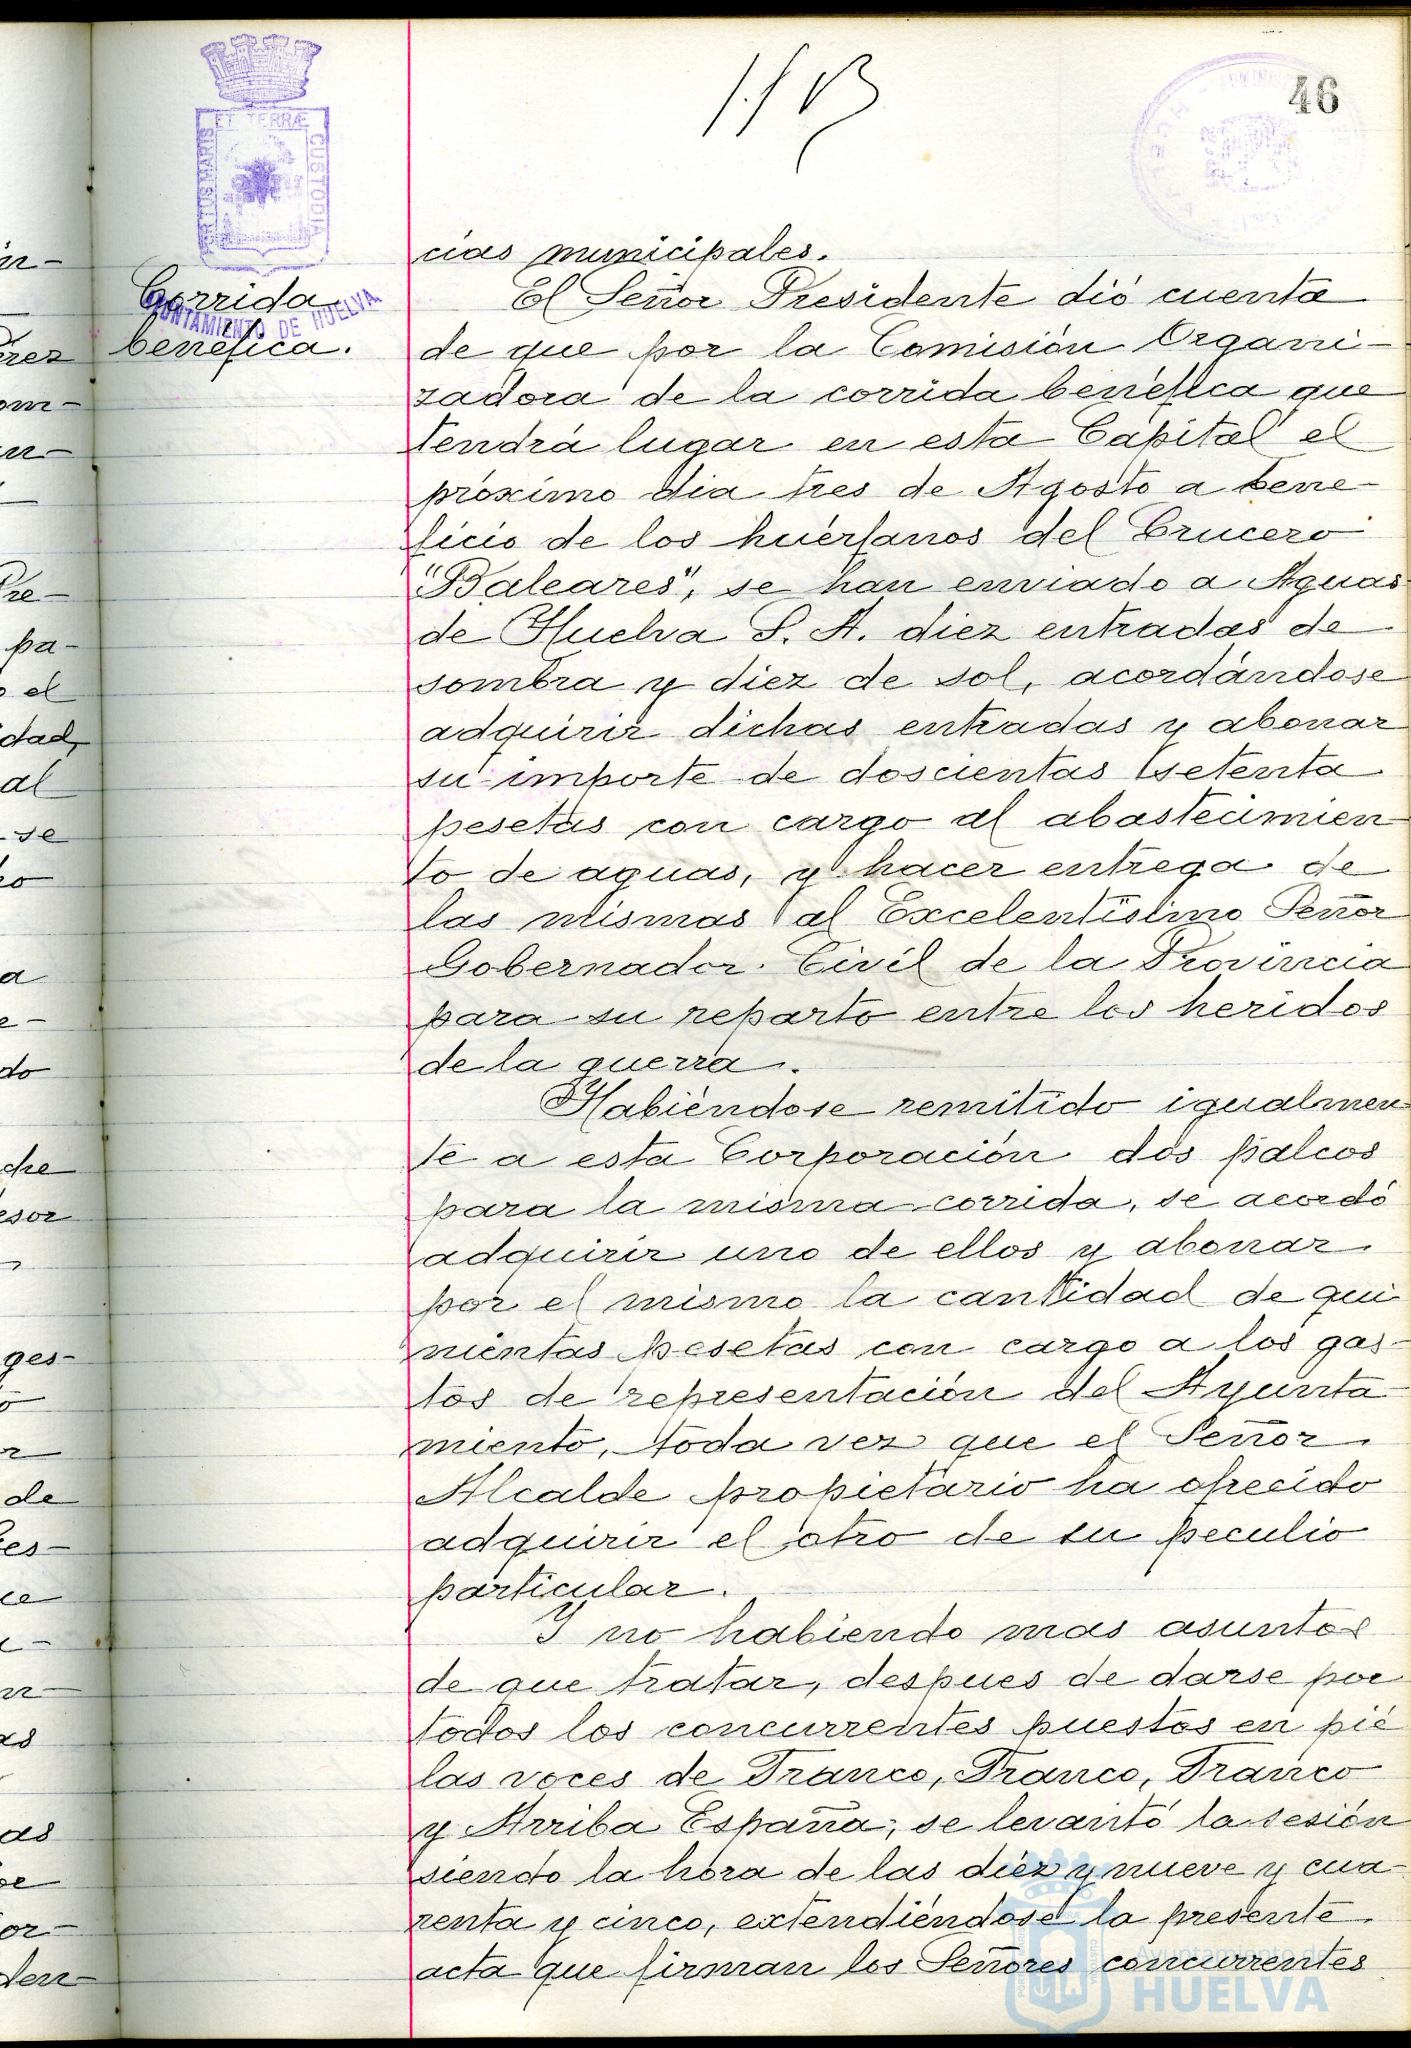 46
PORTUS MARIS ET TERRÆ CUSTODIA
AYUNTAMIENTO DE HUELVA
Corrida
benéfica.
cias municipales.
El Señor Presidente dió cuenta
de que por la Comisión Organi-
zadora de la corrida benéfica que
tendrá lugar en esta Capital el
próximo dia tres de Agosto a bene-
ficio de los huérfanos del Crucero
"Baleares", se han enviado a Aguas
de Huelva S. A. diez entradas de
sombra y diez de sol, acordándose
adquirir dichas entradas y abonar
su importe de doscientas setenta
pesetas con cargo al abastecimien
to de aguas, y hacer entrega de
las mismas al Excelentísimo Señor
Gobernador Civil de la Provincia
para su reparto entre los heridos
de la guerra.
Habiéndose remitido igualmen
te a esta Corporación dos palcos
para la misma corrida, se acordó
adquirir uno de ellos y abonar
por el mismo la cantidad de qui
nientas pesetas con cargo a los gas-
tos de representación del Ayunta
miento, toda vez que el Señor
Alcalde propietario ha ofrecido
adquirir el otro de su peculio
particular.
Y no habiendo mas asuntos
de que tratar, despues de darse por
todos los concurrentes puestos en pié
las voces de Franco, Franco, Franco
y Arriba España, se levantó la sesión
siendo la hora de las diez y nueve y cua-
renta y cinco, extendiéndose la presente
acta que firman los Señores concurrentes
Ayuntamiento de
HUELVA